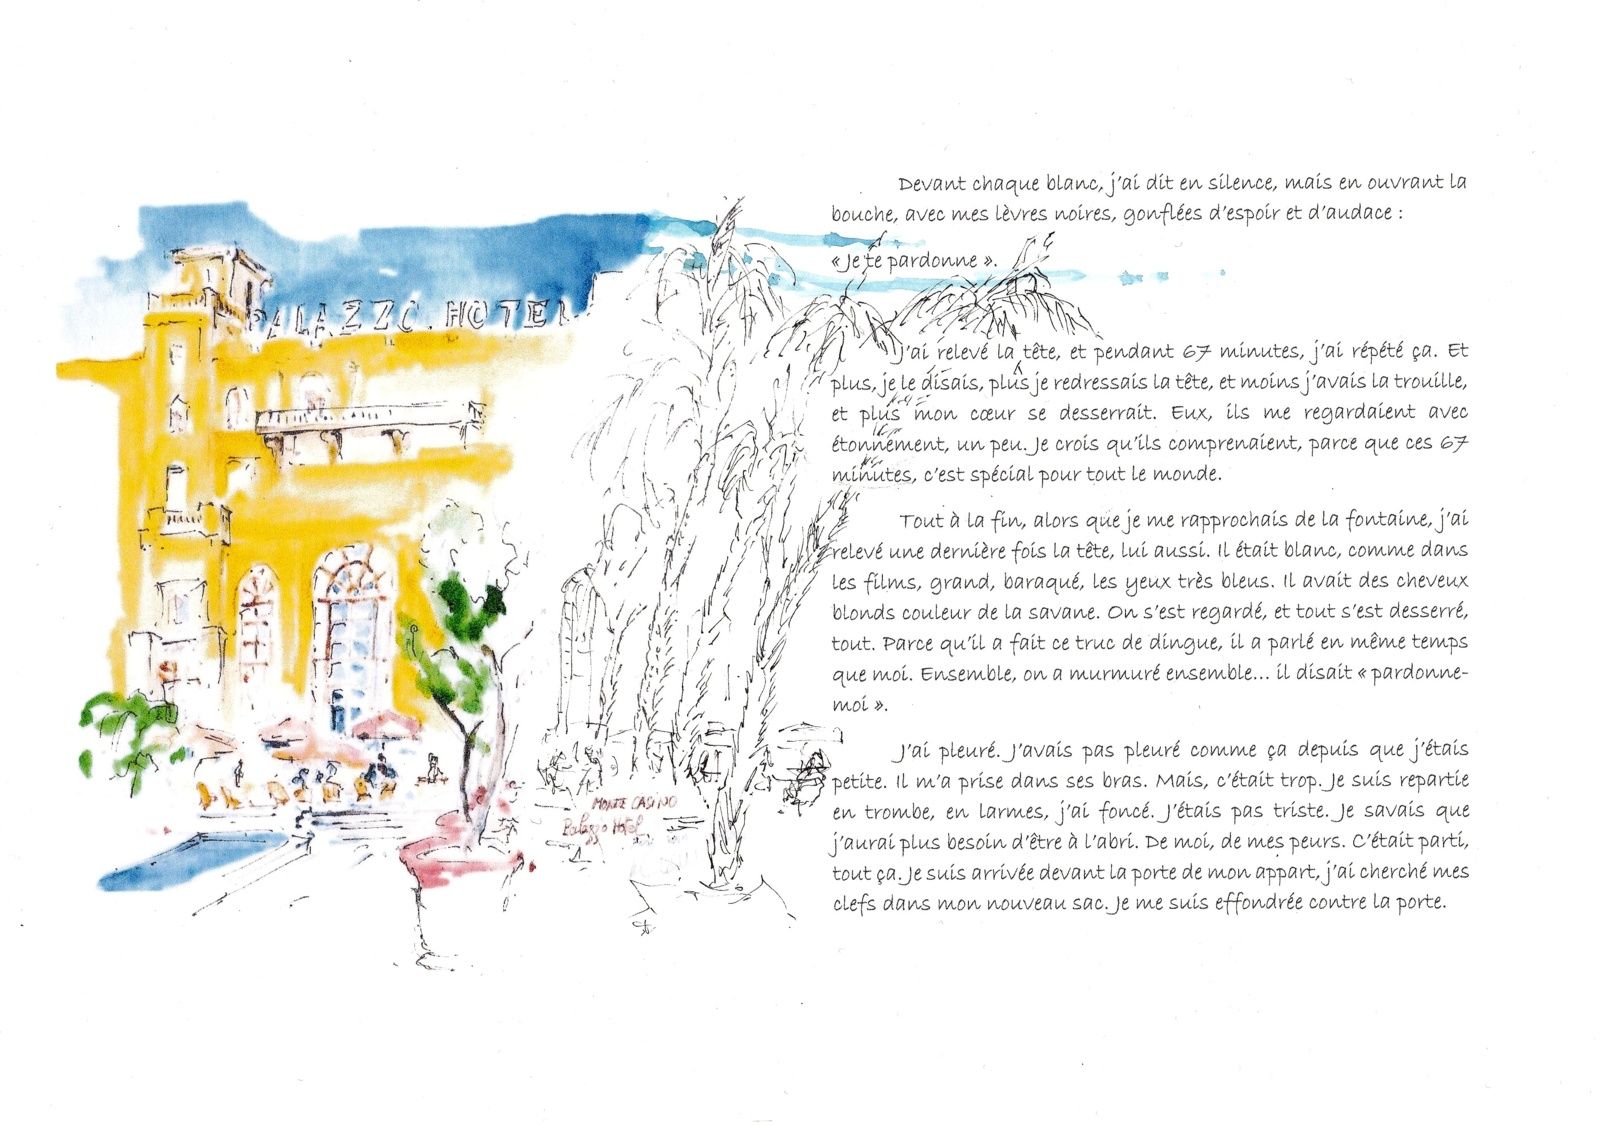 PALAZZO HOTEL
MONTE CASINO
Palazzo Hotel
Devant chaque blanc, j'ai dit en silence, mais en ouvrant la
bouche, avec mes lèvres noires, gonflées d'espoir et d'audace :
« Je te pardonne ».
J'ai relevé la tête, et pendant 67 minutes, j'ai répété ça. Et
plus, je le disais, plus je redressais la tête, et moins j'avais la trouille,
et plus mon cœur se desserrait. Eux, ils me regardaient avec
étonnement, un peu. Je crois qu'ils comprenaient, parce que ces 67
minutes, c'est spécial pour tout le monde.
Tout à la fin, alors que je me rapprochais de la fontaine, j'ai
relevé une dernière fois la tête, lui aussi. Il était blanc, comme dans
les films, grand, baraqué, les yeux très bleus. Il avait des cheveux
blonds couleur de la savane. On s'est regardé, et tout s'est desserré,
tout. Parce qu'il a fait ce truc de dingue, il a parlé en même temps
que moi. Ensemble, on a murmuré ensemble... il disait « pardonne-
moi ».
J'ai pleuré. J'avais pas pleuré comme ça depuis que j'étais
petite. Il m'a prise dans ses bras. Mais, c'était trop. Je suis repartie
en trombe, en larmes, j'ai foncé. J'étais pas triste. Je savais que
j'aurai plus besoin d'être à l'abri. De moi, de mes peurs. C'était parti,
tout ça. Je suis arrivée devant la porte de mon appart, j'ai cherché mes
clefs dans mon nouveau sac. Je me suis effondrée contre la porte.